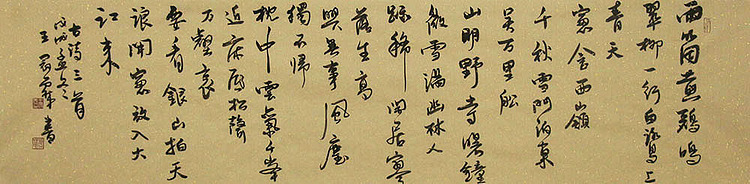 兩箇黄鸝鳴
翠柳一行白鷺上
青天
窓含西山嶺
千秋雪門泊東
吴万里船
山明野寺曙鐘
微雪滿幽林人
跡稀閒居寥
落生高
興無事風塵
獨不歸
枕中雲氣千峯
近床底松聲
万壑哀
要看銀山拍天
浪開窓放入大
江来
古詩三首
王 書